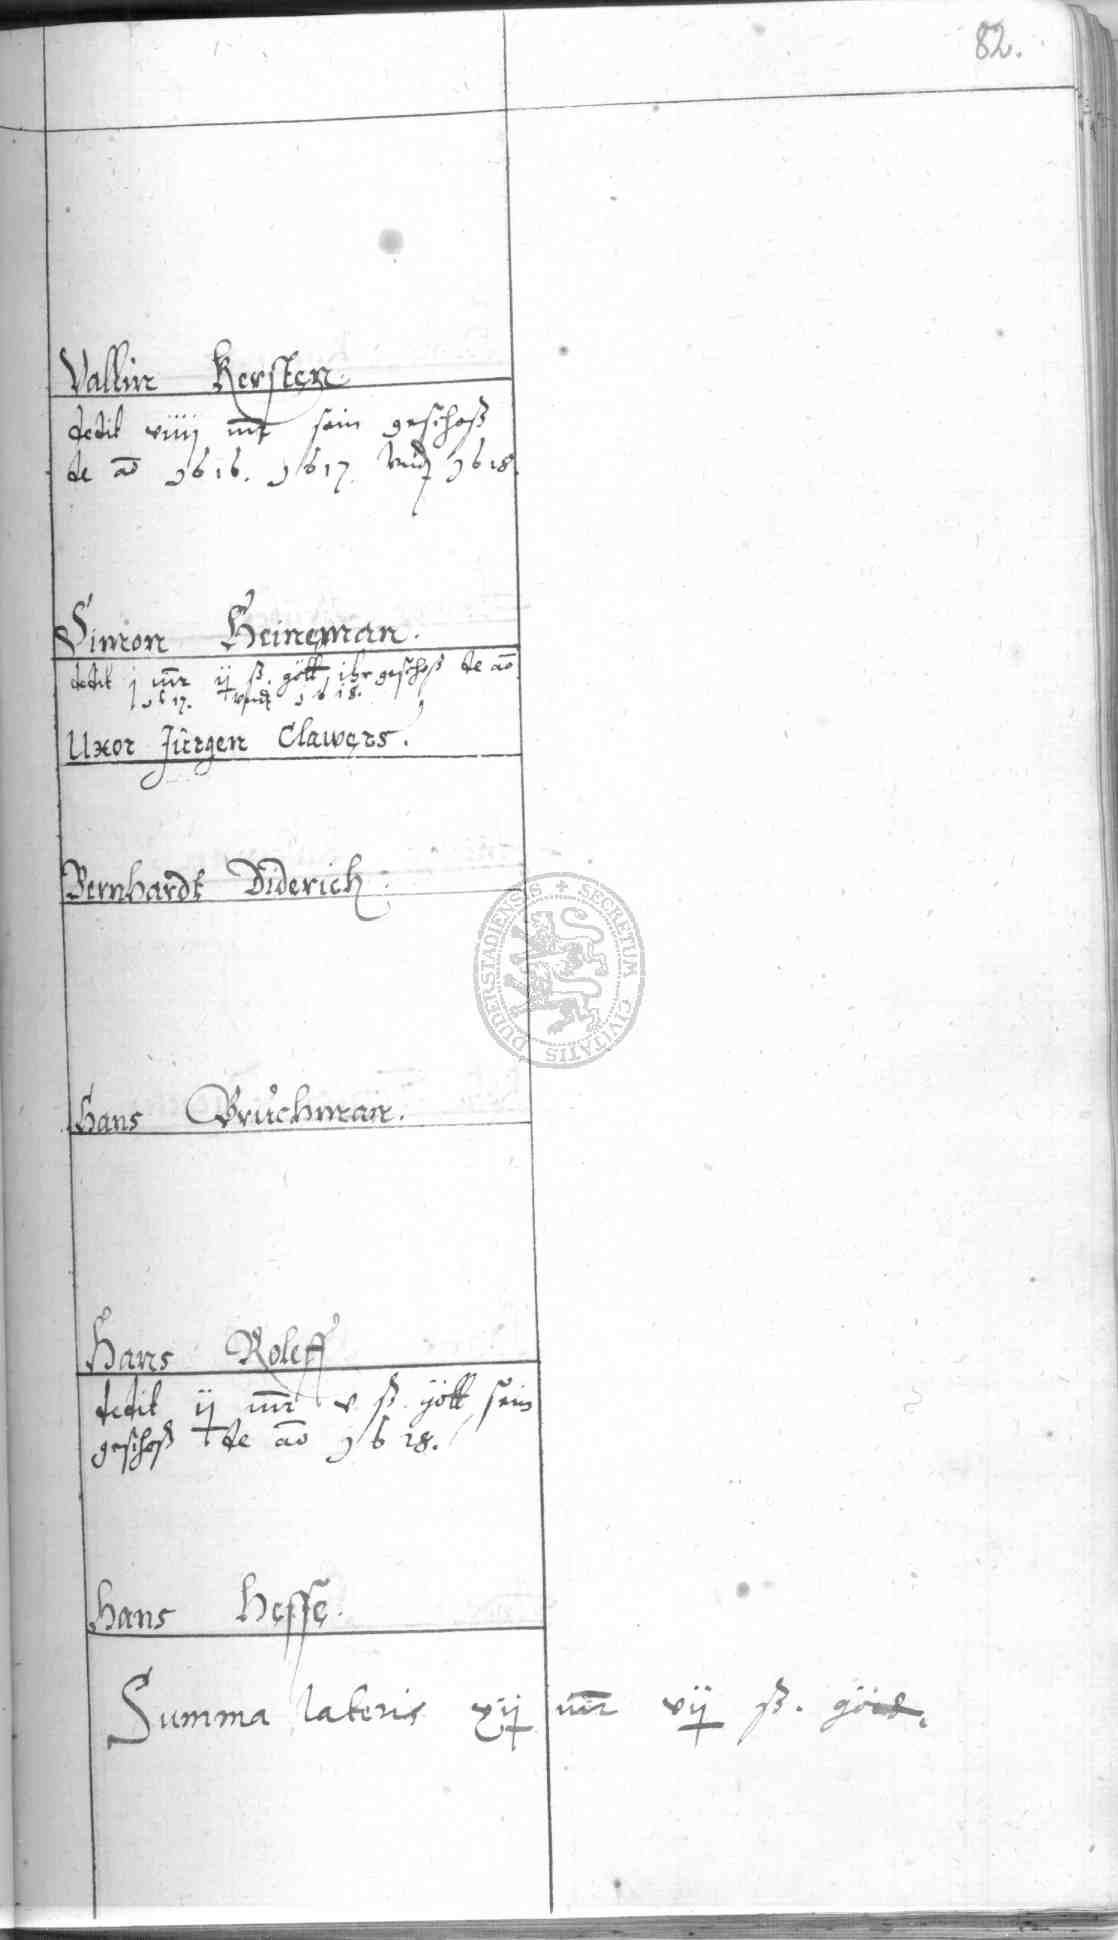 82.
Valtin Kersten.
dedit viiij mr sein geschoß
de ao 1616. 1617. vnd 1618
Simon Heineman.
dedit j mr ij ß. gött ihr geschoß de ao
1617. vnd 1618.
Uxor Jürgen Clawers.
Bernhardt Diderich.
Hans Bruchman.
Hans Roleff
dedit ij mr v ß. gött sein
geschoß de ao 1618.
Hans Hesse.
Summa lateris xij mr vij ß. gött.
SECRETUM CIVITATIS DUDERSTADIENSIS